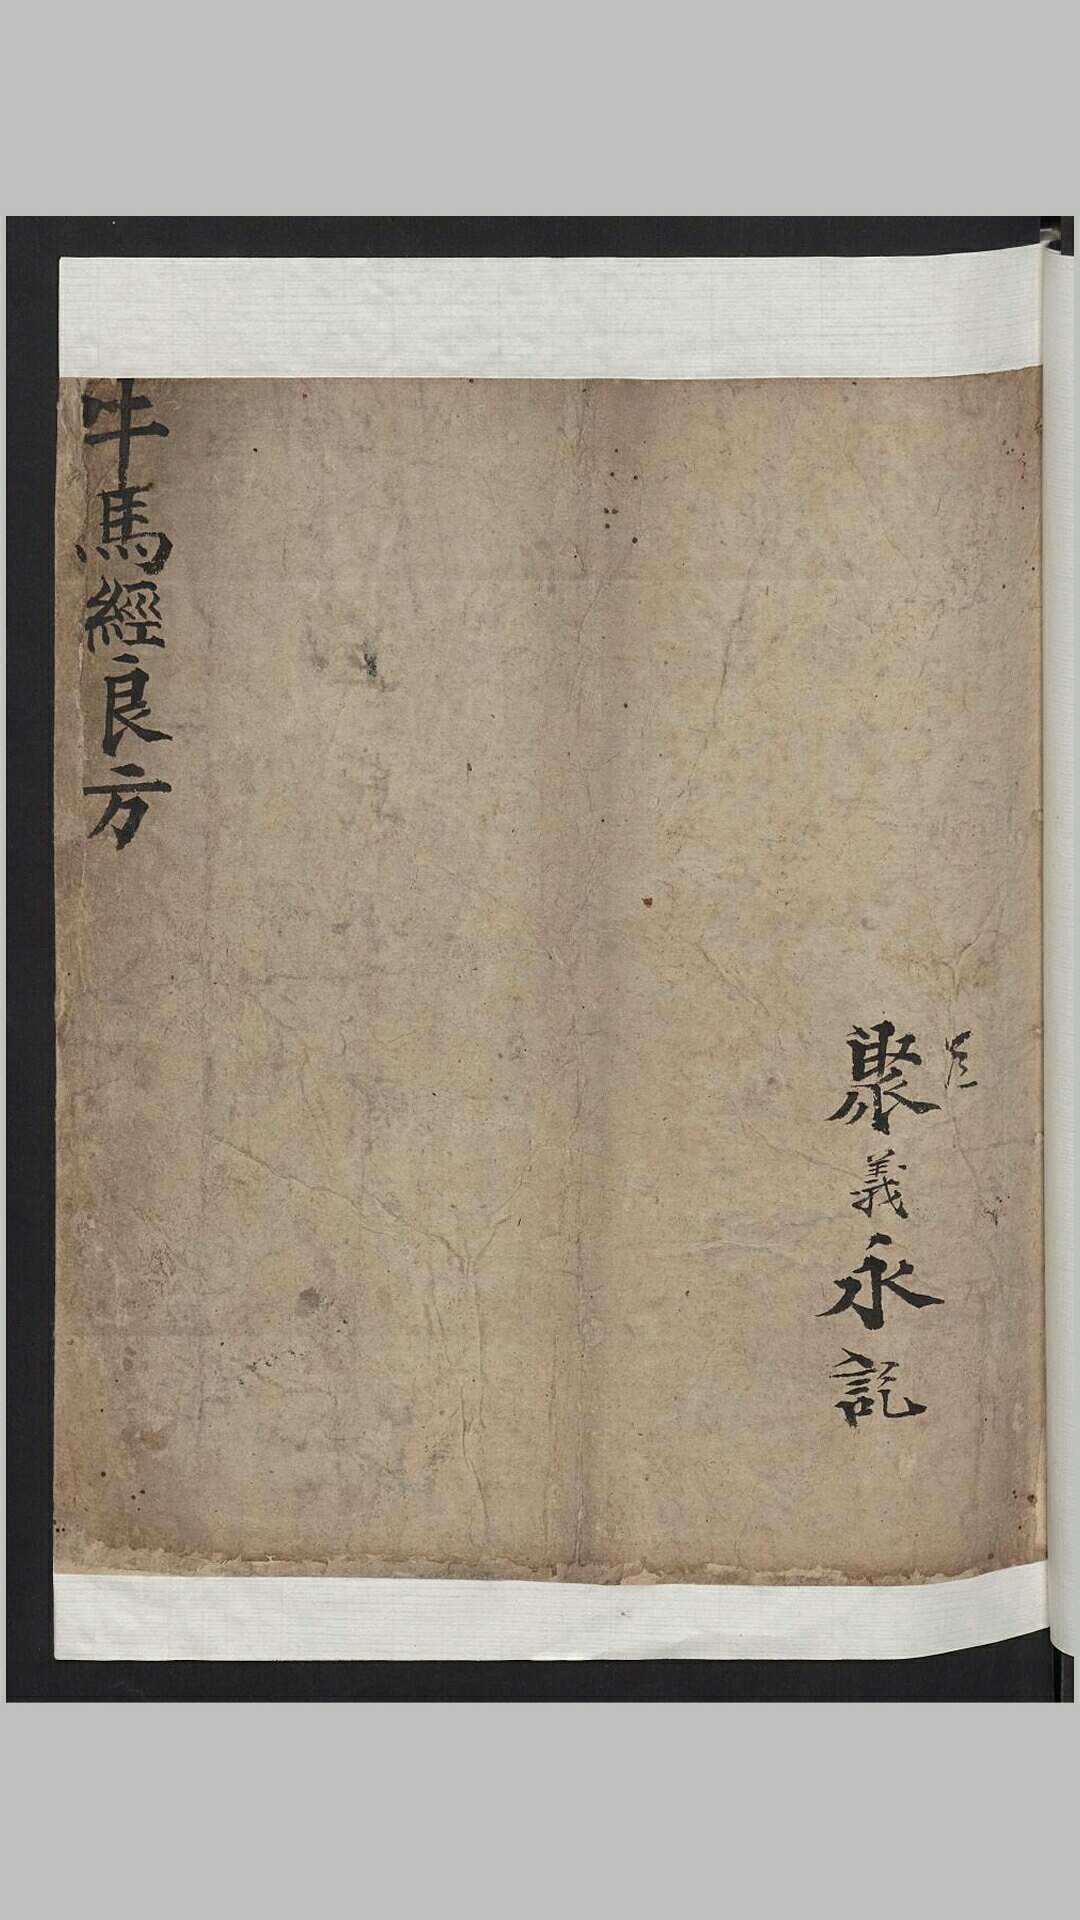 聚義永記
牛馬經良方